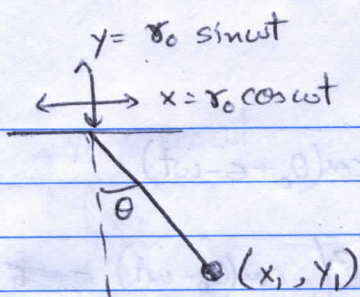 y = r₀ sinωt
x = r₀ cosωt
θ
(x₁, y₁)